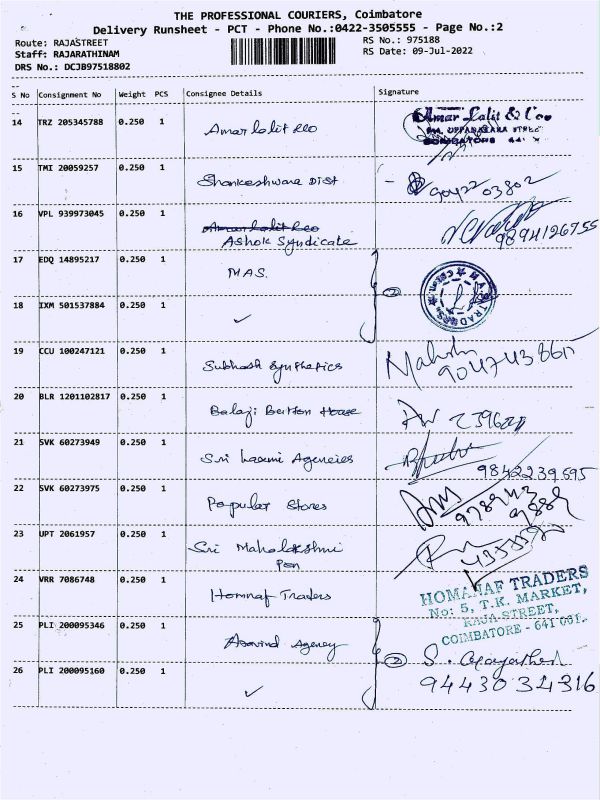 THE PROFESSIONAL COURIERS, Coimbatore
Delivery Runsheet - PCT - Phone No.:0422-3505555 - Page No.:2
Route: RAJASTREET RS No.: 975188
Staff: RAJARATHINAM RS Date: 09-Jul-2022
DRS No.: DCJB97518802
S No Consignment No Weight PCS Consignee Details Signature
14 TRZ 205345788 0.250 1 Amar Lalit &Co Amar Lalit & Co
COIMBATORE
15 TMI 20059257 0.250 1 Shankeshwara Dist 9042203802
16 VPL 939973045 0.250 1 Amar Lalit &Co
Ashok Syndicate 9894126755
17 EDQ 14895217 0.250 1 MAS. 2
18 IXM 501537884 0.250 1 ✓
19 CCU 100247121 0.250 1 Subhash Synthetics
20 BLR 1201102817 0.250 1 Balaji Button House
21 SVK 60273949 0.250 1 Sri Laxmi Agencies 9842239595
22 SVK 60273975 0.250 1 Popular Stores
23 UPT 2061957 0.250 1 Sri Mahalakshmi
Pen
24 VRR 7086748 0.250 1 Homnaf Traders HOMANAF TRADERS
No: 5, T.K. MARKET,
RAJA STREET,
COIMBATORE - 641 001.
25 PLI 200095346 0.250 1 Aravind Agency 2
26 PLI 200095160 0.250 1 ✓ 9443034316